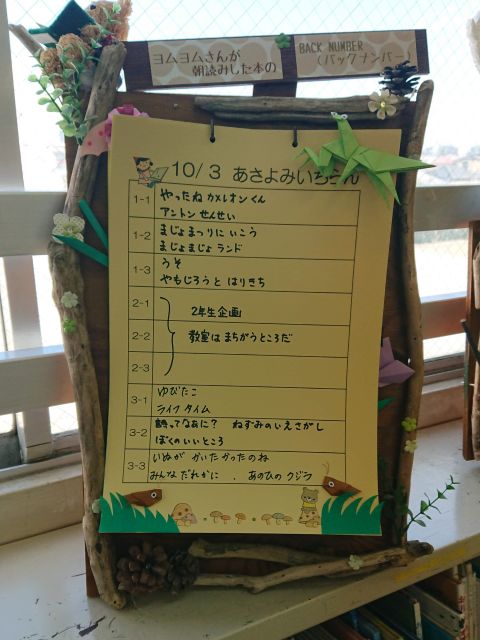 ヨムヨムさんが
朝読みした本の
BACK NUMBER
(バックナンバー)
10/3 あさよみいちらん
1-1 やったね カメレオンくん
アントン せんせい
1-2 まじょまつりに いこう
まじょまじょ ランド
1-3 うそ
やもじろうと はりきち
2-1 2年生企画
2-2 教室は まちがうところだ
2-3
3-1 ゆびたこ
ライフタイム
3-2 ってなあに? ねずみのいえさがし
ぼくのいいところ
3-3 いぬが かいたかったのね
みんな だれかに . あのひの クジラ